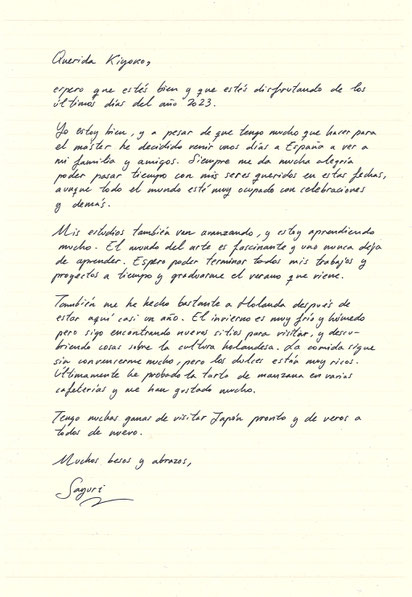 Querida Kiyoko,
espero que estés bien y que estés disfrutando de los
últimos días del año 2023.
Yo estoy bien, y a pesar de que tengo mucho que hacer para
el máster he decidido venir unos días a España a ver a
mi familia y amigos. Siempre me da mucha alegría
poder pasar tiempo con mis seres queridos en estas fechas,
aunque todo el mundo esté muy ocupado con celebraciones
y demás.
Mis estudios también van avanzando, y estoy aprendiendo
mucho. El mundo del arte es fascinante y uno nunca deja
de aprender. Espero poder terminar todos mis trabajos y
proyectos a tiempo y graduarme el verano que viene.
También me he hecho bastante a Holanda después de
estar aquí casi un año. El invierno es muy frío y húmedo
pero sigo encontrando nuevos sitios para visitar, y descu-
briendo cosas sobre la cultura holandesa. La comida sigue
sin convencerme mucho, pero los dulces están muy ricos.
Últimamente he probado la tarta de manzana en varias
cafeterías y me han gustado mucho.
Tengo muchas ganas de visitar Japón pronto y de veros a
todos de nuevo.
Muchos besos y abrazos,
Sayuri